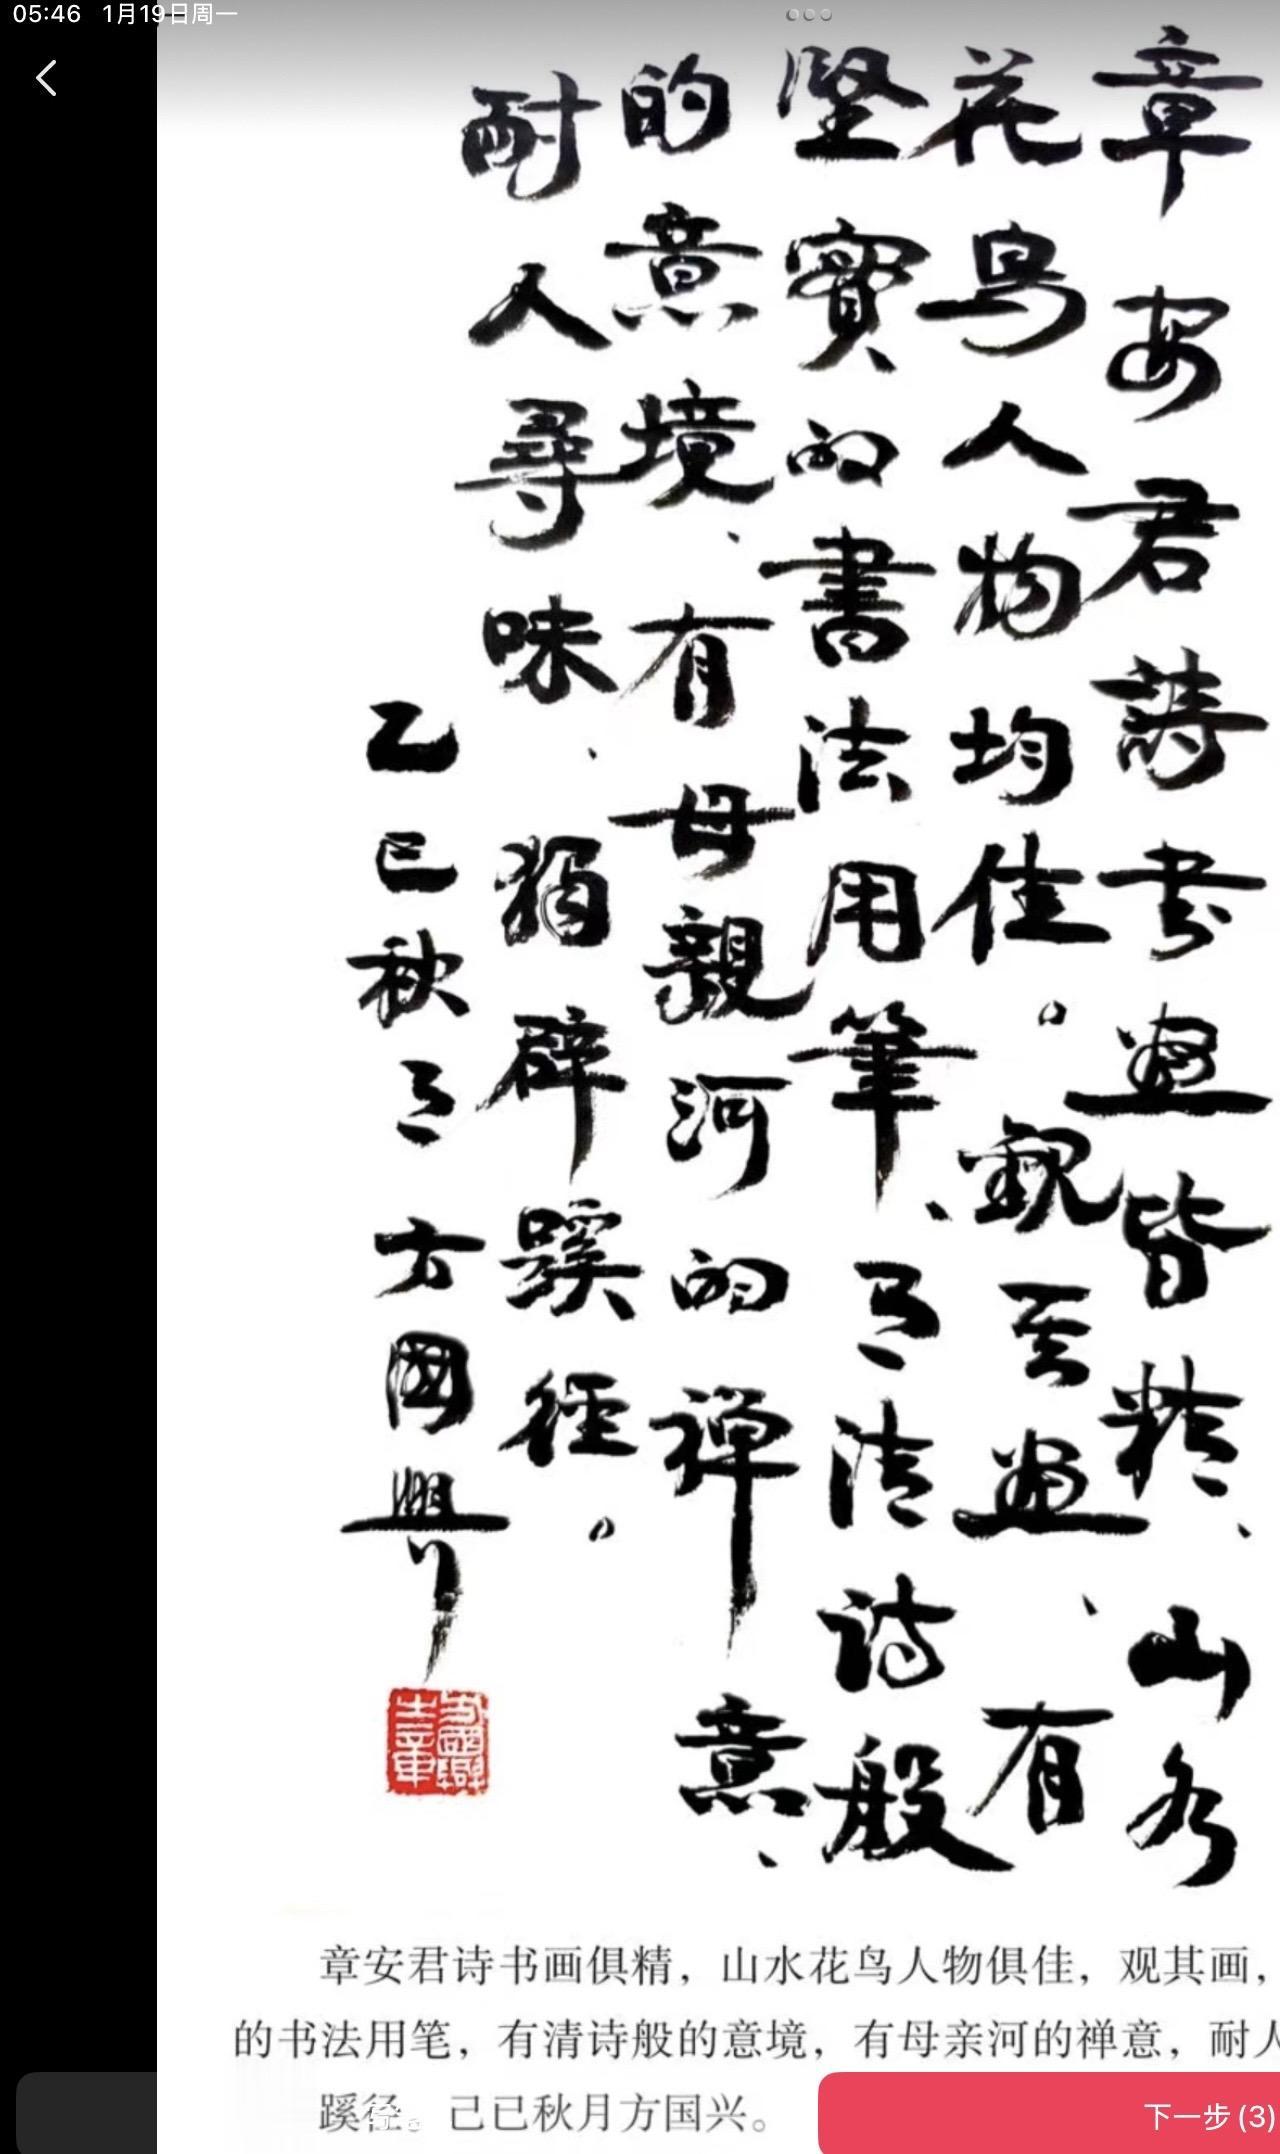 05:46 1月19日周一
章安君詩书畫皆精、山水
花鳥人物均佳。觀其畫、有
堅實的書法用筆、有清诗般
的意境、有母親河的禅意、
耐人尋味、獨辟蹊径。
乙巳秋月方國興
章安君诗书画俱精，山水花鸟人物俱佳，观其画，
的书法用笔，有清诗般的意境，有母亲河的禅意，耐人
蹊径。己已秋月方国兴。
下一步 (3)